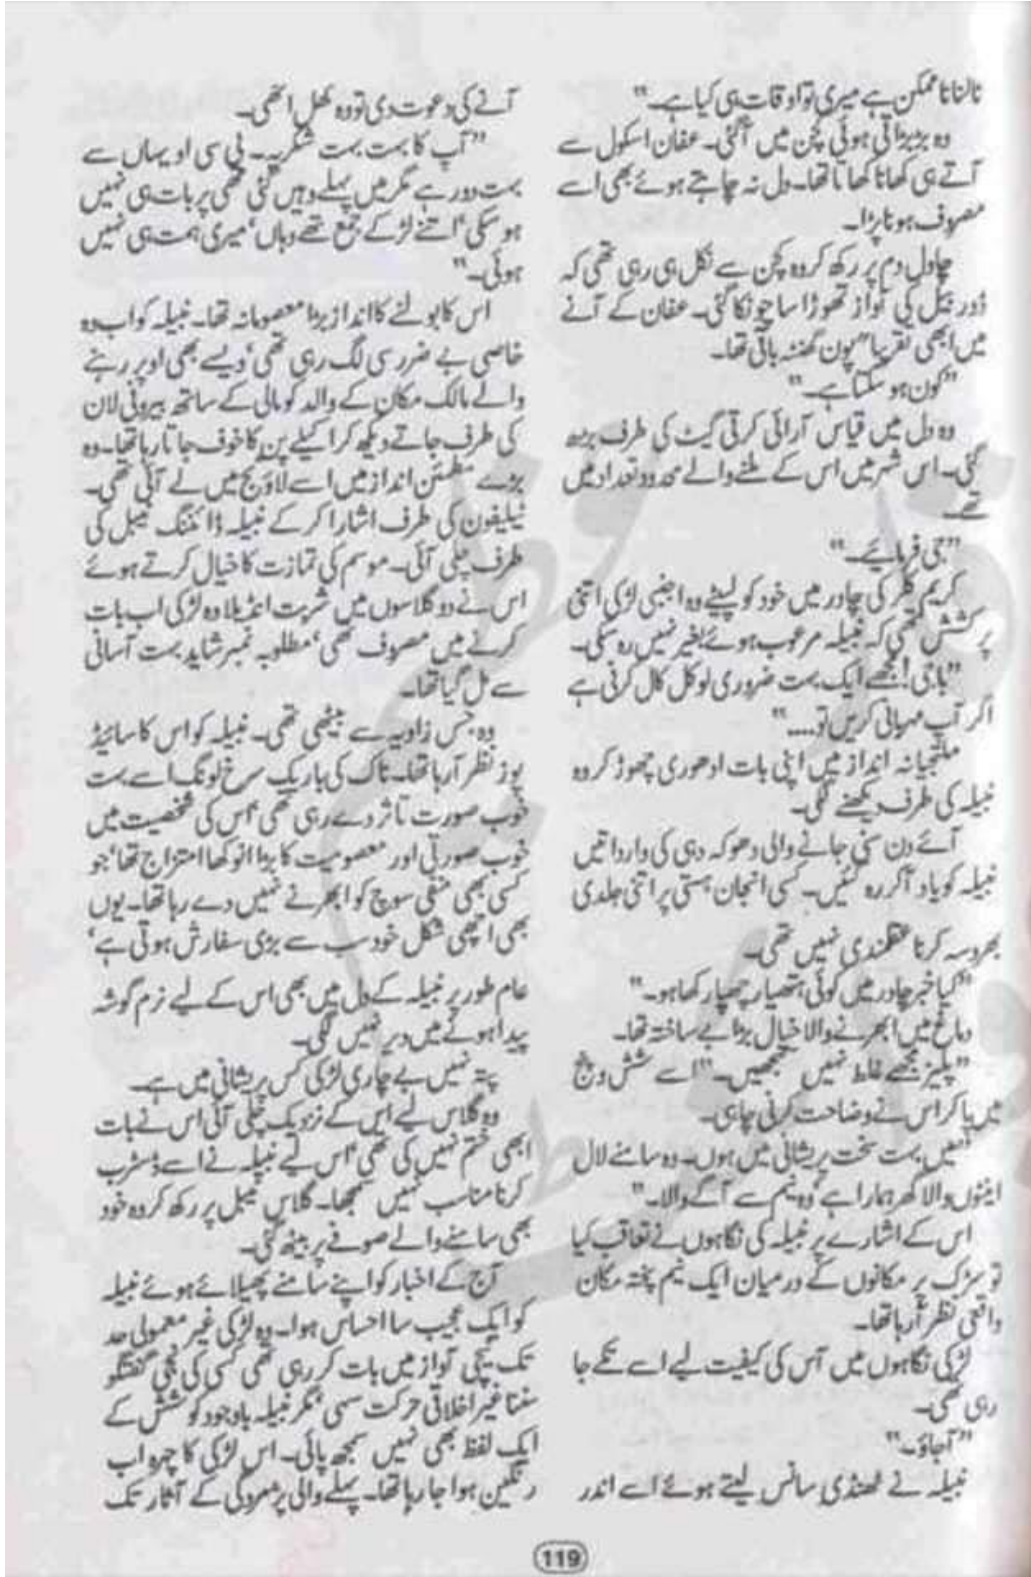 ٹالنا ناممکن ہے میری تو اوقات ہی کیا ہے۔"
وہ بڑبڑاتی ہوئی کچن میں آگئی۔ عفان اسکول سے
آتے ہی کھانا کھاتا تھا۔ دل نہ چاہتے ہوئے بھی اسے
مصروف ہونا پڑا۔
چاول دم پر رکھ کر وہ کچن سے نکل ہی رہی تھی کہ
ڈور بیل کی آواز تھوڑا سا چونکا گئی۔ عفان کے آنے
میں ابھی تقریباً" پون گھنٹہ باقی تھا۔
"کون ہو سکتا ہے۔"
وہ دل میں قیاس آرائی کرتی گیٹ کی طرف بڑھ
گئی۔ اس شہر میں اس کے ملنے والے محدود تعداد میں
تھے۔
"جی فرمائیے۔"
کریم کلر کی چادر میں خود کو لپیٹے وہ اجنبی لڑکی اتنی
پرکشش تھی کہ نبیلہ مرعوب ہوئے بغیر نہیں رہ سکی۔
"باجی! مجھے ایک بہت ضروری لوکل کال کرنی ہے
اگر آپ مہربانی کریں تو...."
ملتجیانہ انداز میں اپنی بات ادھوری چھوڑ کر وہ
نبیلہ کی طرف دیکھنے لگی۔
آئے دن سنی جانے والی دھوکہ دہی کی وارداتیں
نبیلہ کو یاد آکر رہ گئیں۔ کسی انجان ہستی پر اتنی جلدی
بھروسہ کرنا عقلمندی نہیں تھی۔
"کیا خبر چادر میں کوئی ہتھیار چھپا رکھا ہو۔"
دماغ میں ابھرنے والا خیال بڑا بے ساختہ تھا۔
"پلیز مجھے غلط نہیں سمجھیں۔" اسے شش و پنج
میں پا کر اس نے وضاحت کرنی چاہی۔
"میں بہت سخت پریشانی میں ہوں۔ وہ سامنے لال
اینٹوں والا گھر ہمارا ہے' وہ نیم سے آگے والا۔"
اس کے اشارے پر نبیلہ کی نگاہوں نے تعاقب کیا
تو سڑک پر مکانوں کے درمیان ایک نیم پختہ مکان
واقعی نظر آ رہا تھا۔
لڑکی نگاہوں میں آس کی کیفیت لیے اسے تکے جا
رہی تھی۔
"آجاؤ۔"
نبیلہ نے ٹھنڈی سانس لیتے ہوئے اسے اندر
آنے کی دعوت دی تو وہ کھل اٹھی۔
"آپ کا بہت بہت شکریہ۔ پی سی او یہاں سے
بہت دور ہے مگر میں پہلے وہیں گئی تھی پر بات ہی نہیں
ہو سکی' اتنے لڑکے جمع تھے وہاں' میری ہمت ہی نہیں
ہوئی۔"
اس کا بولنے کا انداز بڑا معصومانہ تھا۔ نبیلہ کو اب وہ
خاصی بے ضرر سی لگ رہی تھی' ویسے بھی اوپر رہنے
والے مالک مکان کے والد کو مالی کے ساتھ بیرونی لان
کی طرف جاتے دیکھ کر اکیلے پن کا خوف جاتا رہا تھا۔ وہ
بڑے مطمئن انداز میں اسے لاؤنج میں لے آئی تھی۔
ٹیلیفون کی طرف اشارا کر کے نبیلہ ڈائننگ ٹیبل کی
طرف چلی آئی۔ موسم کی تمازت کا خیال کرتے ہوئے
اس نے دو گلاسوں میں شربت انڈیلا وہ لڑکی اب بات
کرنے میں مصروف تھی' مطلوبہ نمبر شاید بہت آسانی
سے مل گیا تھا۔
وہ جس زاویہ سے بیٹھی تھی۔ نبیلہ کو اس کا سائیڈ
پوز نظر آ رہا تھا۔ ناک کی باریک سرخ لونگ اسے بہت
خوب صورت تاثر دے رہی تھی' اس کی شخصیت میں
خوب صورتی اور معصومیت کا بڑا انوکھا امتزاج تھا' جو
کسی بھی منفی سوچ کو ابھرنے نہیں دے رہا تھا۔ یوں
بھی اچھی شکل خود سب سے بڑی سفارش ہوتی ہے'
عام طور پر نبیلہ کے دل میں بھی اس کے لیے نرم گوشہ
پیدا ہونے میں دیر نہیں لگی۔
پتہ نہیں بے چاری لڑکی کس پریشانی میں ہے۔
وہ گلاس لیے اس کے نزدیک چلی آئی اس نے بات
ابھی ختم نہیں کی تھی' اس لیے نبیلہ نے اسے ڈسٹرب
کرنا مناسب نہیں سمجھا۔ گلاس ٹیبل پر رکھ کر وہ خود
بھی سامنے والے صوفے پر بیٹھ گئی۔
آج کے اخبار کو اپنے سامنے پھیلائے ہوئے نبیلہ
کو ایک عجیب سا احساس ہوا۔ وہ لڑکی غیر معمولی حد
تک نیچی آواز میں بات کر رہی تھی کسی کی نجی گفتگو
سننا غیر اخلاقی حرکت سہی' مگر نبیلہ باوجود کوشش کے
ایک لفظ بھی نہیں سمجھ پائی۔ اس لڑکی کا چہرہ اب
رنگین ہوا جا رہا تھا۔ پہلے والی پژمردگی کے آثار تک
119